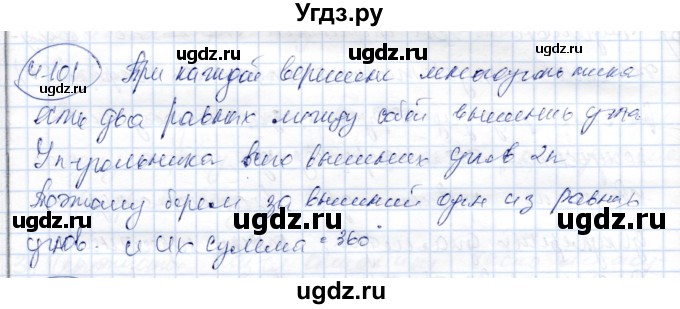 Угдз.ру
4.101 При каждой вершине многоугольника
есть два равных между собой внешних угла
У n-угольника всего внешних углов 2n
Поэтому берем за внешний один из равных
углов. и их сумма = 360°
ugdz.ru ugdz.ru ugdz.ru
ugdz.ru ugdz.ru ugdz.ru
ugdz.ru ugdz.ru